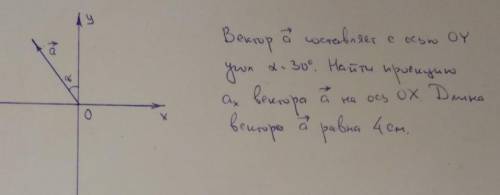 y
a⃗
α
O
x
Вектор a⃗ составляет с осью OY
угол α = 30°. Найти проекцию
aₓ вектора a⃗ на ось OX Длина
вектора a⃗ равна 4 см.